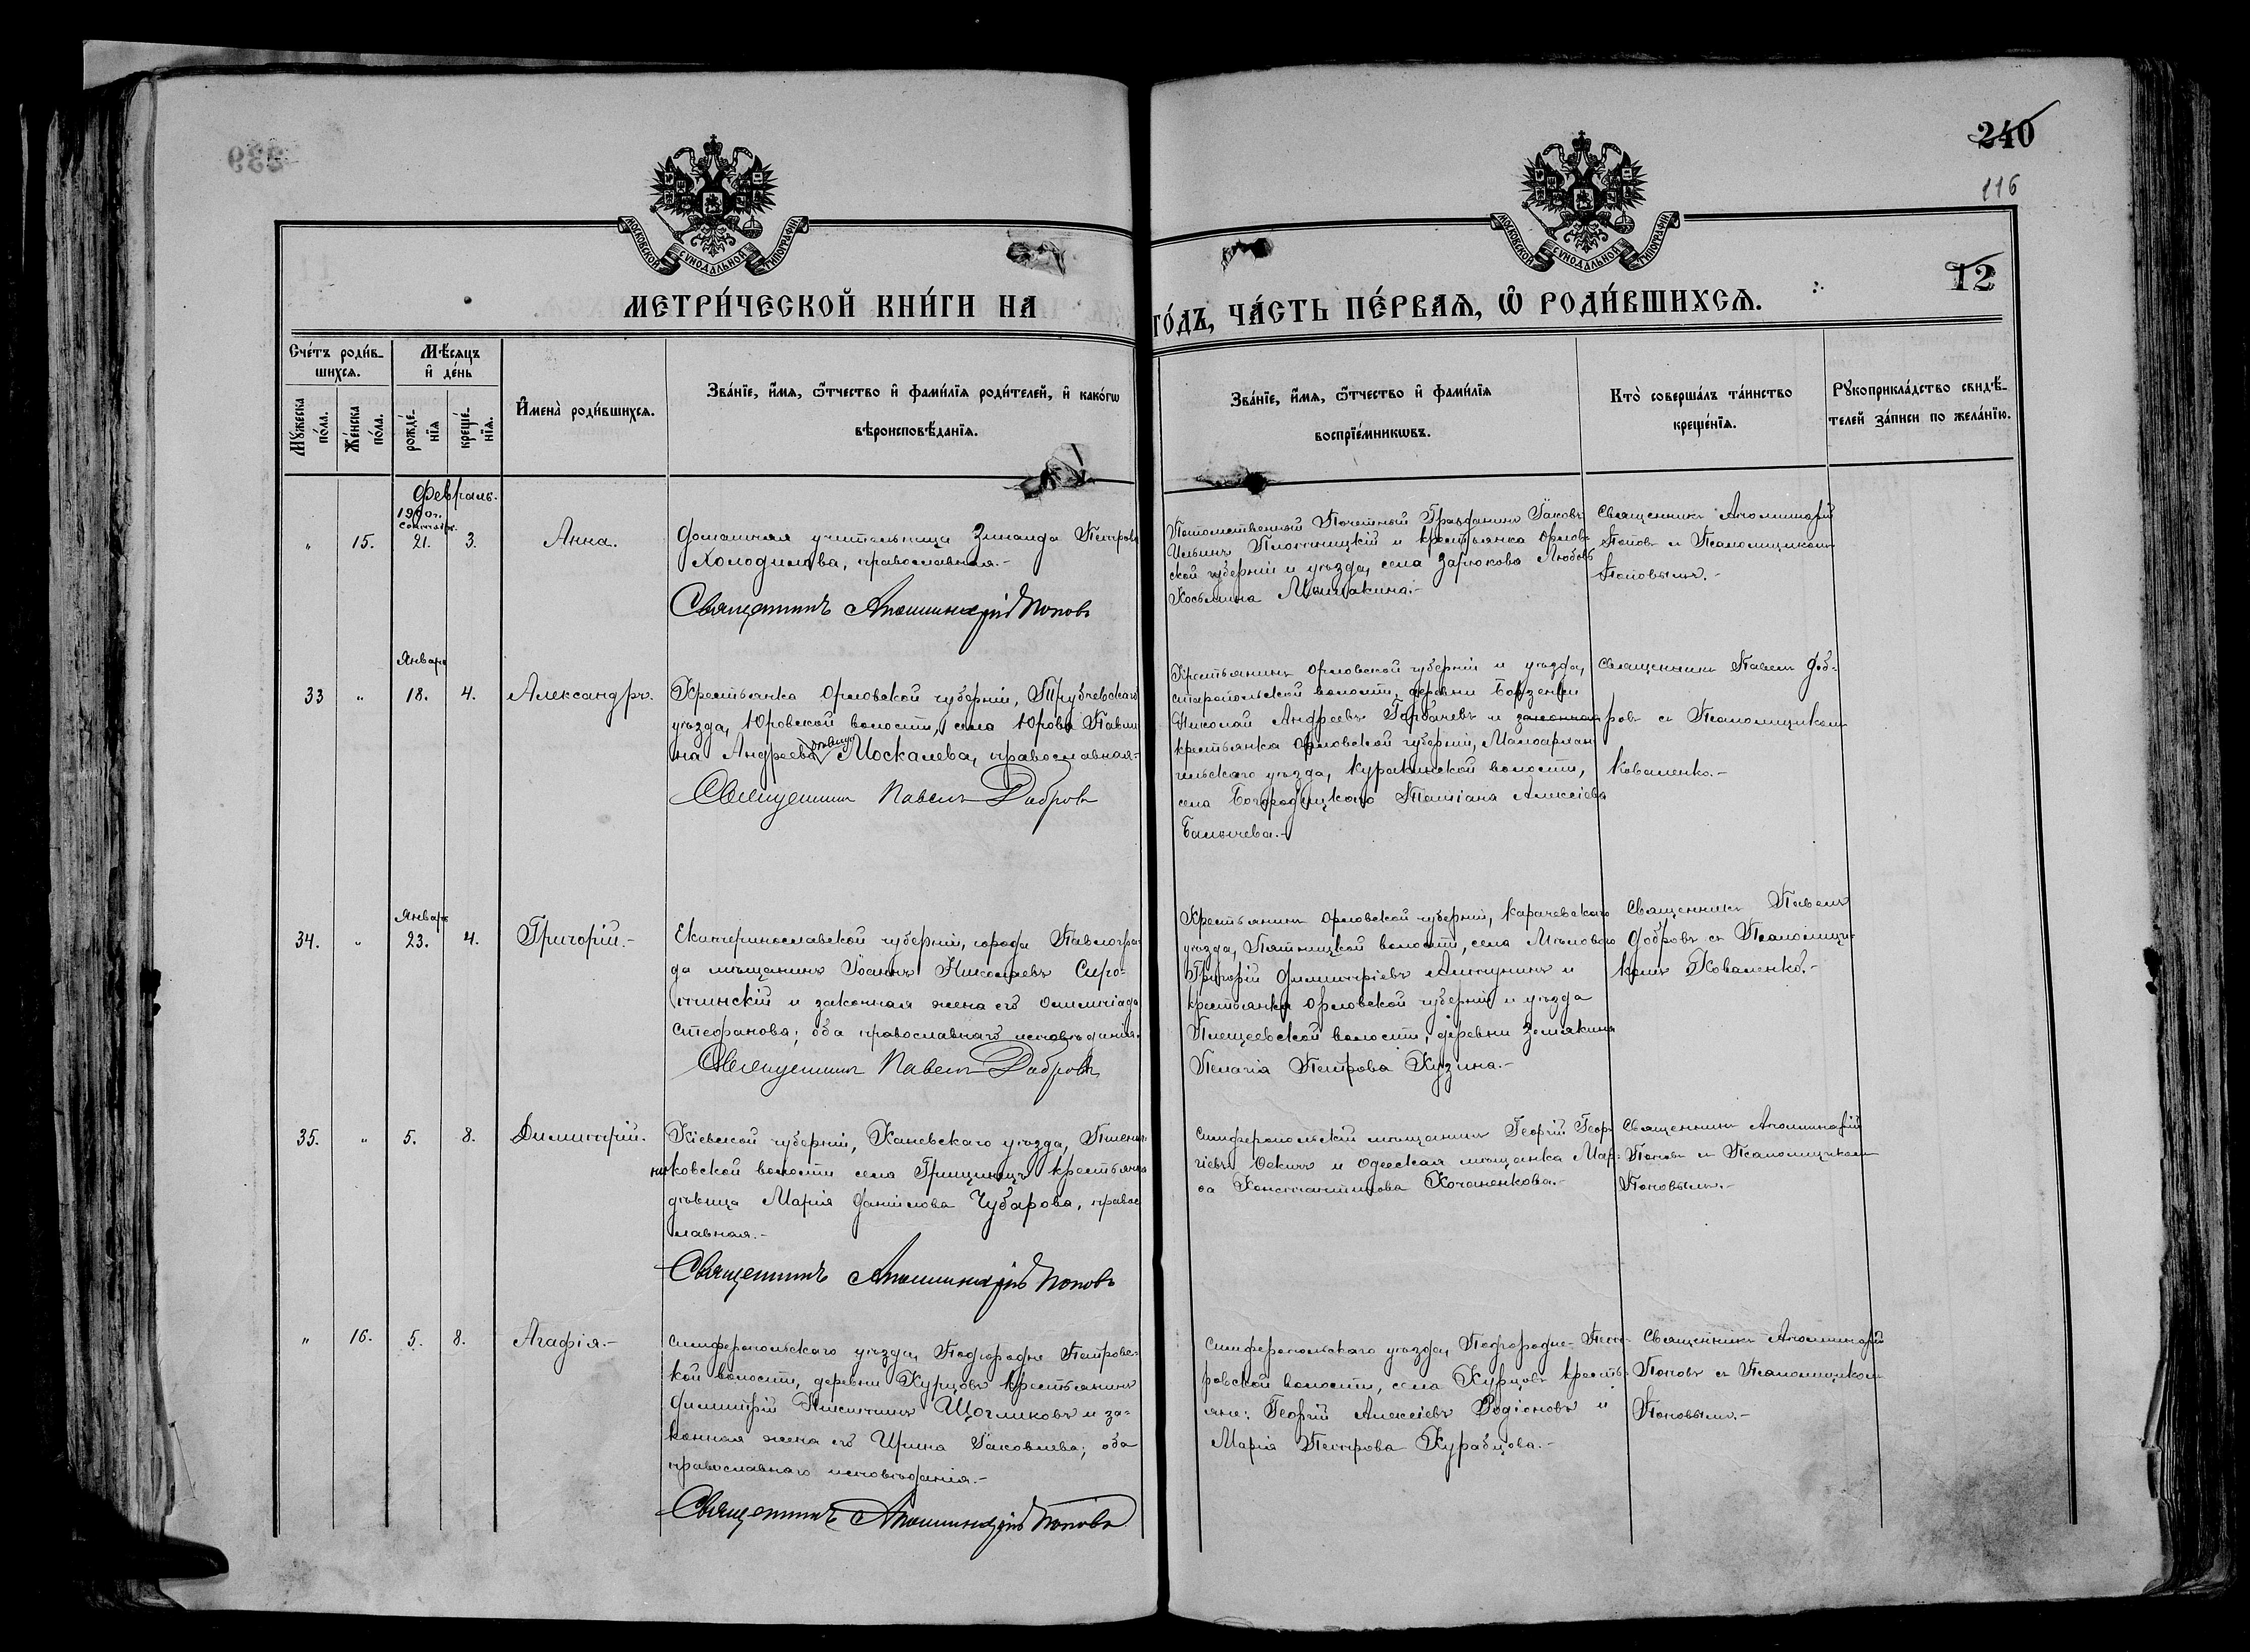 239
240
116
МОСКОВСКОЙ СѴНОДАЛЬНОЙ ТИПОГРАФІИ
МОСКОВСКОЙ СѴНОДАЛЬНОЙ ТИПОГРАФІИ
12
МЕТРИ́ЧЕСКОЙ КНИ́ГИ НА
ГО́ДЪ, ЧА́СТЬ ПЕ́РВАѦ, Ѽ РОДИ́ВШИХСѦ.
Сче́тъ роди́в-
шихсѧ.
Мѣ́сѧцъ
и҆ де́нь
Мꙋ́жеска
по́ла.
Же́нска
по́ла.
рожде́-
нїѧ
креще́-
нїѧ.
И҆мена̀ роди́вшихсѧ.
Зва́нїе, и҆́мѧ, ѻ҆́тчество и҆ фами́лїѧ роди́телей, и҆ како́гѡ
вѣроисповѣ́данїѧ.
Зва́нїе, и҆́мѧ, ѻ҆́тчество и҆ фами́лїѧ
воспрїе́мникѡвъ.
Кто̀ соверша́лъ та́инство
креще́нїѧ.
Рꙋкоприкла́дство свидѣ́-
телей за́писи по жела́нїю.
Февраль.
1900 г.
21.
" 15. 3. Анна.
Домашняя учительница Зинаида Петрова
Холодилова, православная.-
Священникъ Аполлинарій Поповъ
Потомственный Почетный Гражданинъ Іаковъ
Ильинъ Плотницкій и крестьянка Орлов-
ской губерніи и уѣзда, села Любовь
Косьмина
Священникъ Аполлинарій
Поповъ и Псаломщикомъ
Поповымъ.-
Январь
33 " 18. 4. Александръ.
Крестьянка Орловской губерніи, Трубчевскаго
уѣзда, Юровской волости, села Юрова
на Андреева дѣвица Москалева, православная-
Священникъ Павелъ Добровъ
Крестьянинъ Орловской губерніи и уѣзда,
волости, деревни
Николай Андреевъ Горбачевъ и законная
крестьянка Орловской губерніи, Малоархан-
гельскаго уѣзда, Куракинской волости,
села Богородицкаго Татіана Алексіева
Балычева.-
Священникъ Павелъ Доб-
ровъ съ Псаломщикомъ
Коваленко.-
Январь
34. " 23. 4. Григорій.-
Екатеринославской губерніи, города Павлогра-
да мѣщанинъ Іоаннъ Николаевъ Сиро-
тинскій и законная жена его Олимпіада
Стефанова; оба православнаго исповѣданія.
Священникъ Павелъ Добровъ
Крестьянинъ Орловской губерніи, Карачевскаго
уѣзда, Пятницкой волости, села Мѣловаго
Григорій Димитріевъ и
крестьянка Орловской губерніи и уѣзда
Плещеевской волости, деревниЗемякина
Пелагія Петрова Кузина.-
Священникъ Павелъ
Добровъ съ Псаломщи-
комъ Коваленко.-
35. " 5. 8. Димитрій.-
Кіевской губерніи, Каневскаго уѣзда, Пшенич-
никовской волости села Грищинецъ крестьянка
дѣвица Марія Даніилова Чубарова, правос-
лавная.-
Священникъ Аполлинарій Поповъ
Симферопольскій мѣщанинъ Георгій Геор-
гіевъ и Одесская мѣщанка Мар-
ѳа Константинова Кочаненкова.-
Священникъ Аполлинарій
Поповъ и Псаломщикомъ
Поповымъ.-
" 16. 5. 8. Агафія.-
Симферопольскаго уѣзда, Подгородне Петровс-
кой волости, деревни Курцовъ крестьянинъ
Димитрій Никитинъ Щогликовъ и за-
конная жена его Ирина Іаковлева; оба
православнаго исповѣданія.-
Священникъ Аполлинарій Поповъ
Симферопольскаго уѣзда, Подгородне-Пет-
ровской волости, села Курцовъ кресть-
яне: Георгій Алексіевъ Родіоновъ и
Марія Петрова Курабцова.-
Священникъ Аполлинарій
Поповъ съ Псаломщикомъ
Поповымъ.-